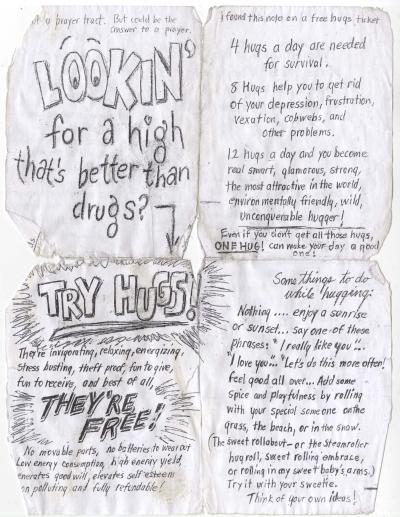 a prayer tract. But could be the
answer to a prayer.
LOOKIN'
for a high
that's better than
drugs?
TRY HUGS!
They're invigorating, relaxing, energizing,
stress busting, theft proof, fun to give,
fun to receive, and best of all,
THEY'RE
FREE!
No movable parts, no batteries to wear out
Low energy consumption, high energy yield,
generates good will, elevates self-esteem
non polluting and fully refundable!
i found this note on a free hugs ticket
4 hugs a day are needed
for survival.
8 Hugs help you to get rid
of your depression, frustration,
vexation, cobwebs, and
other problems.
12 hugs a day and you become
real smart, glamorous, strong,
the most attractive in the world,
environmentally friendly, wild,
unconquerable hugger!
Even if you don't get all those hugs,
ONE HUG! can make your day a good
one!
Some things to do
while hugging:
Nothing.... enjoy a sunrise
or sunset... say one of these
phrases: "I really like you"...
"I love you"... "Let's do this more often!
feel good all over... Add some
spice and playfulness by rolling
with your special someone on the
grass, the beach, or in the snow.
(The sweet rollabout - or the Steamroller
hug roll, sweet rolling embrace,
or rolling in my sweet baby's arms.)
Try it with your sweetie.
Think of your own ideas!